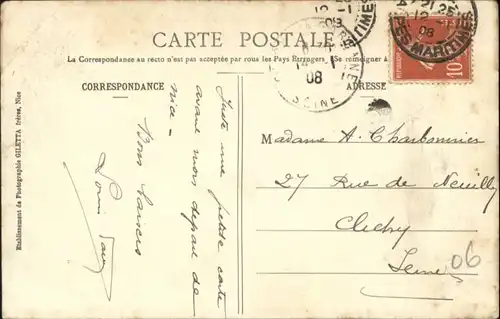 CARTE POSTALE
La Correspondance au recto n'est pas acceptée par tous les Pays Etrangers. (Se renseigner à
CORRESPONDANCE
ADRESSE
Etablissement de Photographie GILETTA frères, Nice
Juste une petite carte
avant mon depart de
nice -
Bons baisers
Madame A. Charbonnier
27 Rue de Neuilly
Clichy
Seine
06
21 25
12 -1
08
ALPES MARITIMES
12 -1
08
MARITIMES
-1
08
SEINE
10